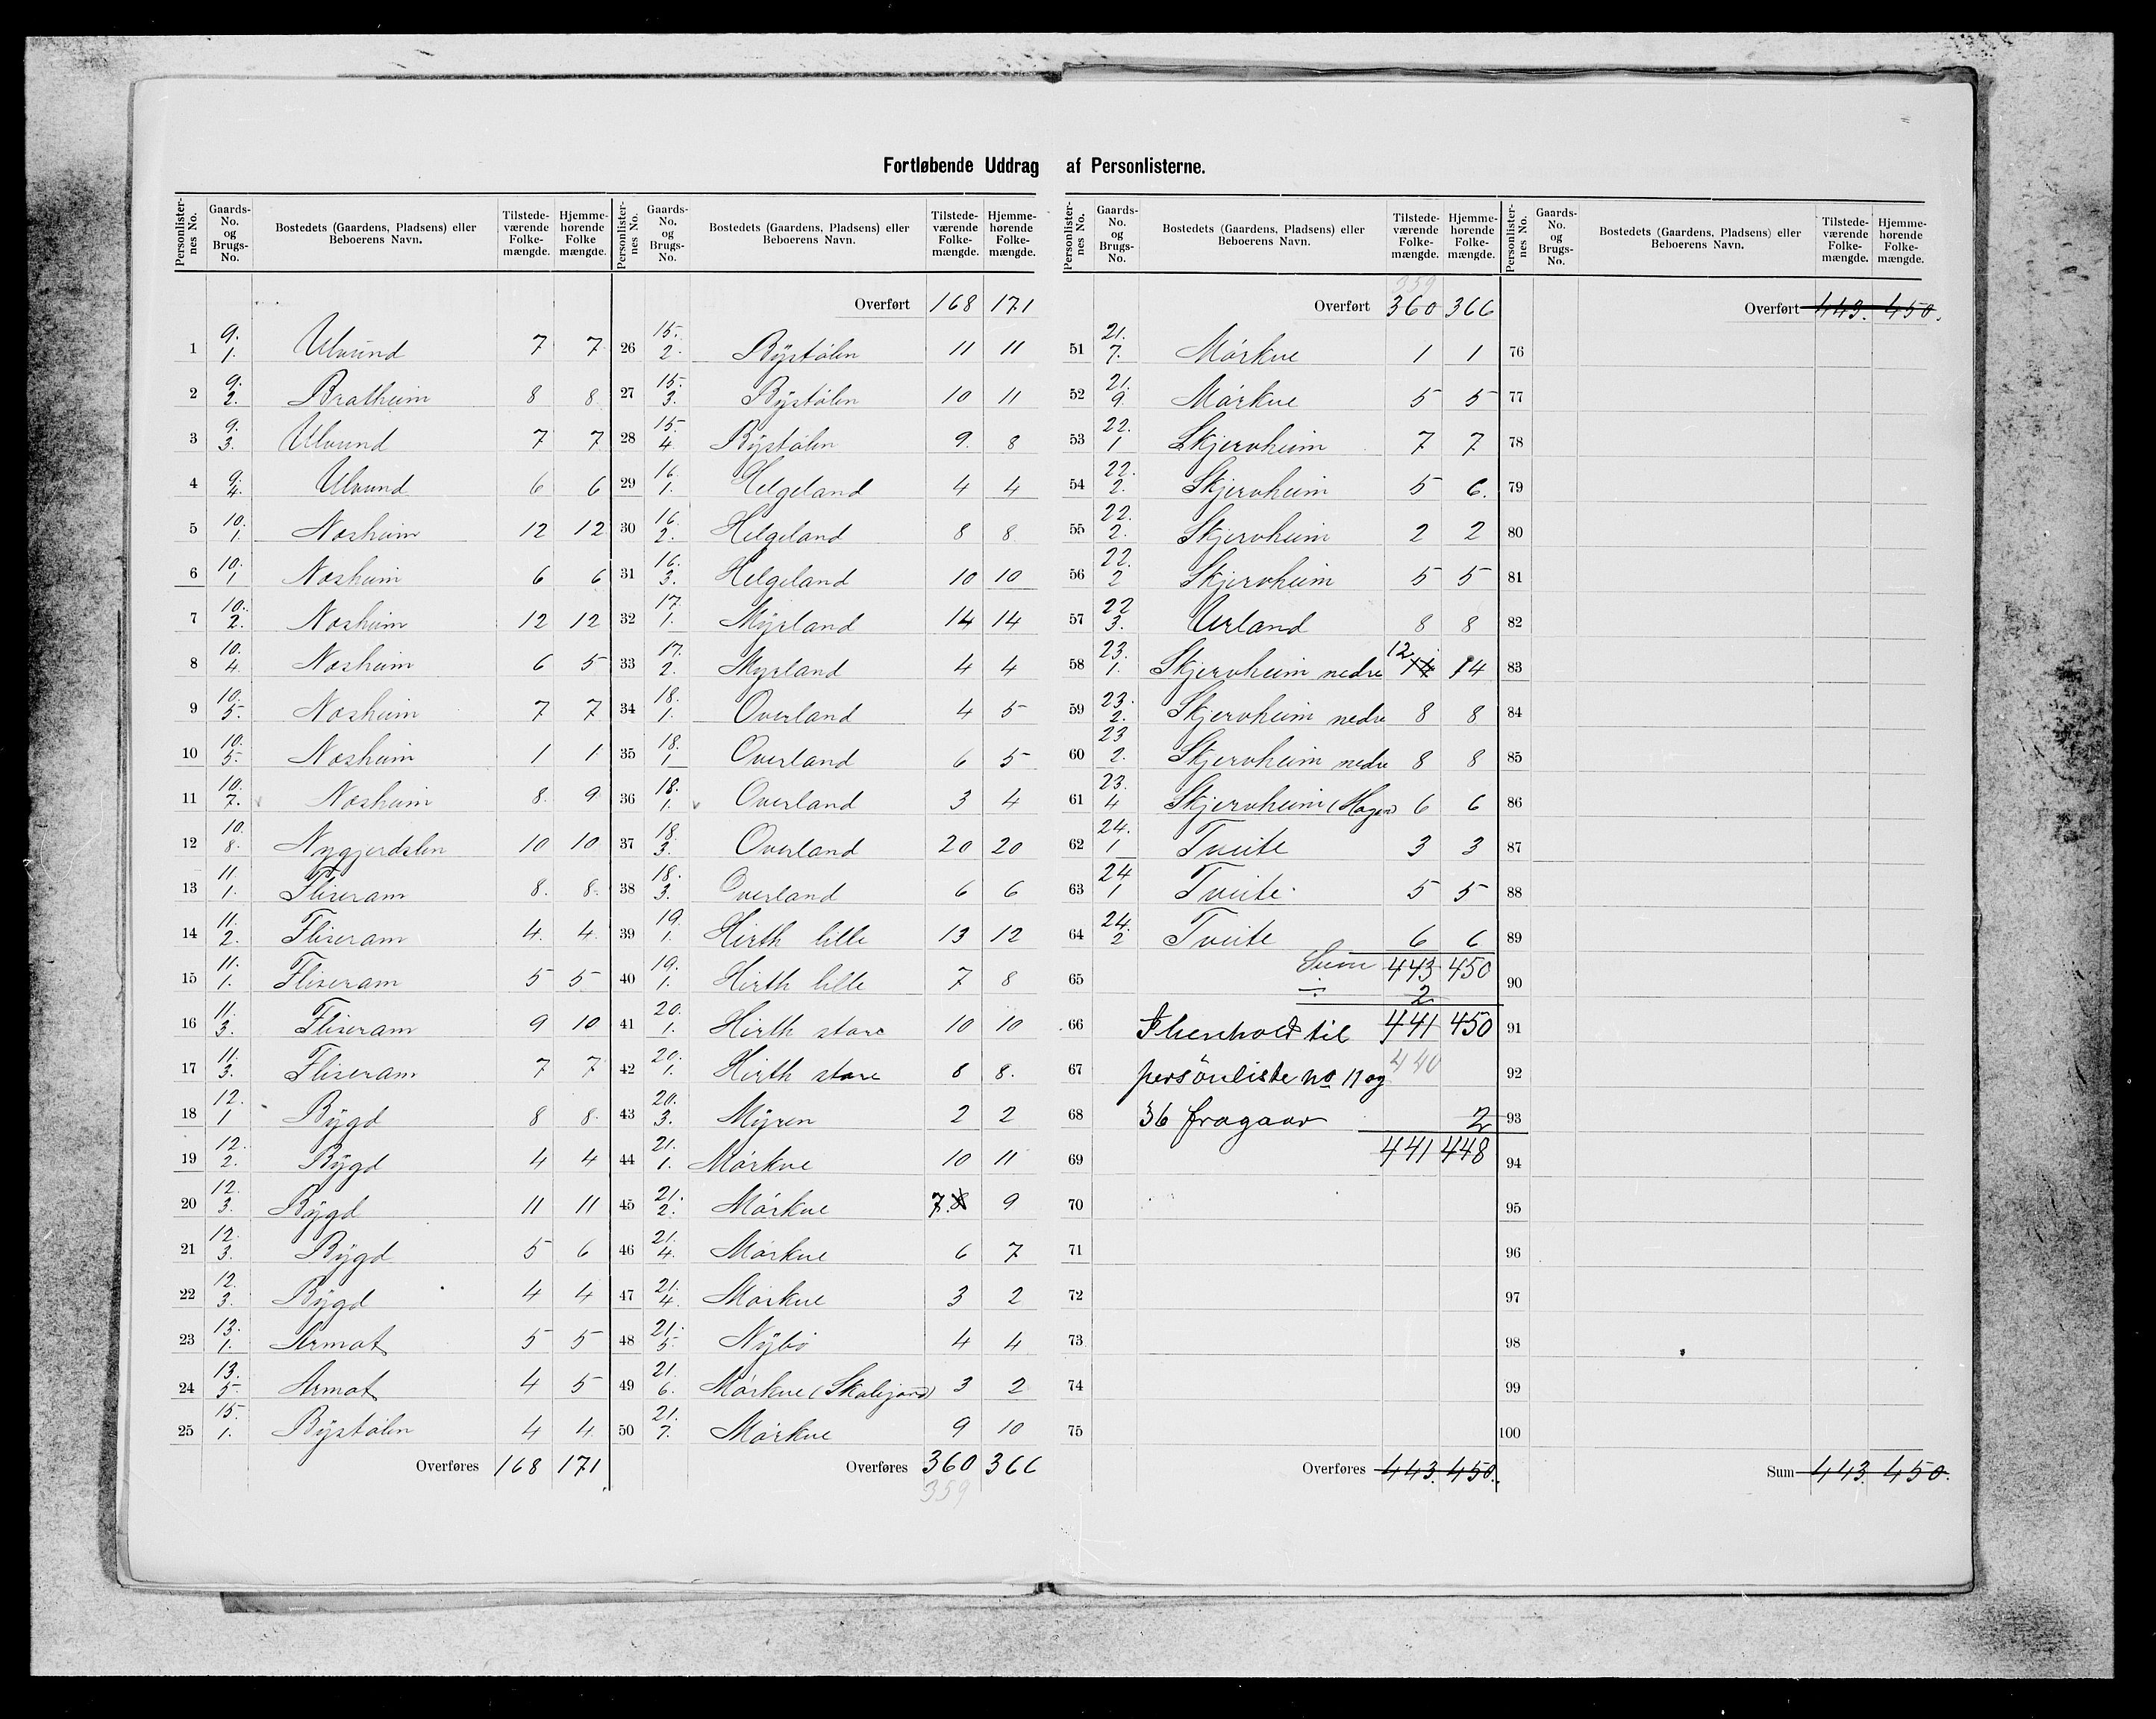 Fortløbende Uddrag af Personlisterne.
Personlisternes No. | Gaards-No. og Brugs-No. | Bostedets (Gaardens, Pladsens) eller Beboerens Navn. | Tilstedeværende Folkemængde. | Hjemmehørende Folkemængde.
1 | 9. 1. | Ulvund | 7 | 7
2 | 9. 2. | Bratheim | 8 | 8
3 | 9. 3. | Ulvund | 7 | 7
4 | 9. 4. | Ulvund | 6 | 6
5 | 10. 1. | Nosheim | 12 | 12
6 | 10. 1 | Nosheim | 6 | 6
7 | 10. 2. | Nosheim | 12 | 12
8 | 10. 4. | Nosheim | 6 | 5
9 | 10. 5. | Nosheim | 7 | 7
10 | 10. 5. | Nosheim | 1 | 1
11 | 10. 7. | Nosheim | 8. | 9
12 | 10. 8. | Nygjerdslen | 10 | 10
13 | 11. 1. | Fliseram | 8. | 8.
14 | 11. 2. | Fliseram | 4. | 4.
15 | 11. 1. | Fliseram | 5 | 5
16 | 11. 3. | Fliseram | 9 | 10
17 | 11. 3. | Fliseram | 7 | 7
18 | 12. 1 | Bÿgd | 8 | 8.
19 | 12. 2. | Bÿgd | 4 | 4
20 | 12. 3. | Bÿgd | 11 | 11
21 | 12. 3. | Bÿgd | 5 | 6
22 | 12. 3. | Bÿgd | 4 | 4
23 | 13. 1. | Armot | 5 | 5
24 | 13. 5 | Armot | 4 | 5
25 | 15. 1. | Bÿstølen | 4 | 4
Overføres 168 171
Personlisternes No. | Gaards-No. og Brugs-No. | Bostedets (Gaardens, Pladsens) eller Beboerens Navn. | Tilstedeværende Folkemængde. | Hjemmehørende Folkemængde.
Overført 168 171
26 | 15. 2. | Bÿstølen | 11 | 11
27 | 15. 3. | Bÿstølen | 10 | 11
28 | 15. 4. | Bÿstølen | 9. | 8
29 | 16. 1. | Helgeland | 4 | 4
30 | 16. 2. | Helgeland | 8 | 8
31 | 16. 3. | Helgeland | 10 | 10
32 | 17. 1. | Mÿrland | 14 | 14
33 | 17. 2. | Myrland | 4 | 4
34 | 18. 1. | Overland | 4 | 5
35 | 18. 1 | Overland | 6 | 5
36 | 18. 1. | Overland | 3 | 4
37 | 18. 3. | Overland | 20 | 20
38 | 18. 3. | Overland | 6 | 6
39 | 19. 1. | Hirth lille | 13 | 12
40 | 19. 1. | Hirth lille | 7 | 8
41 | 20. 1. | Hirth store | 10 | 10
42 | 20. 1. | Hirth store | 8 | 8.
43 | 20. 3. | Mÿren | 2 | 2
44 | 21. 1. | Mórkve | 10 | 11
45 | 21. 2. | Mórkve | 7. 8 | 9
46 | 21. 4. | Mórkve | 6 | 7
47 | 21. 4. | Mórkve | 3 | 2
48 | 21. 5. | Nÿbø | 4 | 4
49 | 21. 6. | Mórkve | 3 | 2
50 | 21. 7. | Mórkve | 9 | 10
Overføres 360 366
359
Personlisternes No. | Gaards-No. og Brugs-No. | Bostedets (Gaardens, Pladsens) eller Beboerens Navn. | Tilstedeværende Folkemængde. | Hjemmehørende Folkemængde.
359
Overført 360 366
51 | 21. 7. | Mórkve | 1 | 1
52 | 21. 9. | Mórkve | 5 | 5
53 | 22. 1 | Skjervheim | 7 | 7
54 | 22. 2. | Skjervheim | 5 | 6.
55 | 22. 2. | Skjervheim | 2 | 2
56 | 22. 2 | Skjervheim | 5 | 5
57 | 22 3. | Urland | 8 | 8
58 | 23. 1. | Skjervheim nedre | 12 14 | 14
59 | 23. 2. | Skjervheim nedre | 8 | 8
60 | 23 2. | Skjervheim nedre | 8 | 8
61 | 23. 4 | Skjervheim (Hagen) | 6 | 6
62 | 24. 1 | Tveite | 3 | 3
63 | 24 1 | Tveite | 5 | 5
64 | 24. 2 | Tveite | 6 | 6
65 Sum 443 450
÷ 2
66 I henhold til 441 450
67 personliste no 11 og 440
68 36 fragaar 2
69 441 448
70
71
72
73
74
75
Overføres 443. 450.
Personlisternes No. | Gaards-No. og Brugs-No. | Bostedets (Gaardens, Pladsens) eller Beboerens Navn. | Tilstedeværende Folkemængde. | Hjemmehørende Folkemængde.
Overført 443. 450.
76
77
78
79
80
81
82
83
84
85
86
87
88
89
90
91
92
93
94
95
96
97
98
99
100
Sum 443. 450.